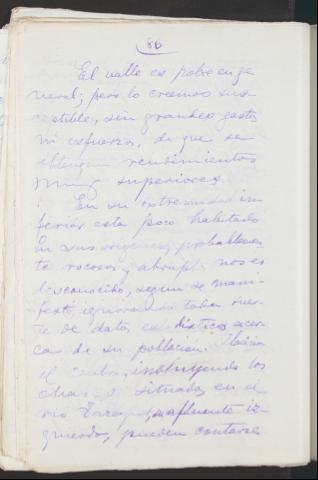 86
El valle es pobre en ge
neral; pero lo creemos sus
ceptible, sin grandes gastos
ni esfuerzos, de que se
obtengan rendimientos
muy superiores
En su extremidad in
ferior esta poco habitado
En sus orígenes, probablemen
te rocosos y abruptos nos es
desconocido, segun se mani
festó, ignorando toda suer
te de datos estadísticos acer
ca de su población. Hacia
el centro, incluyendo los
situados en el
rio afluente iz
quierdo, pueden contarse